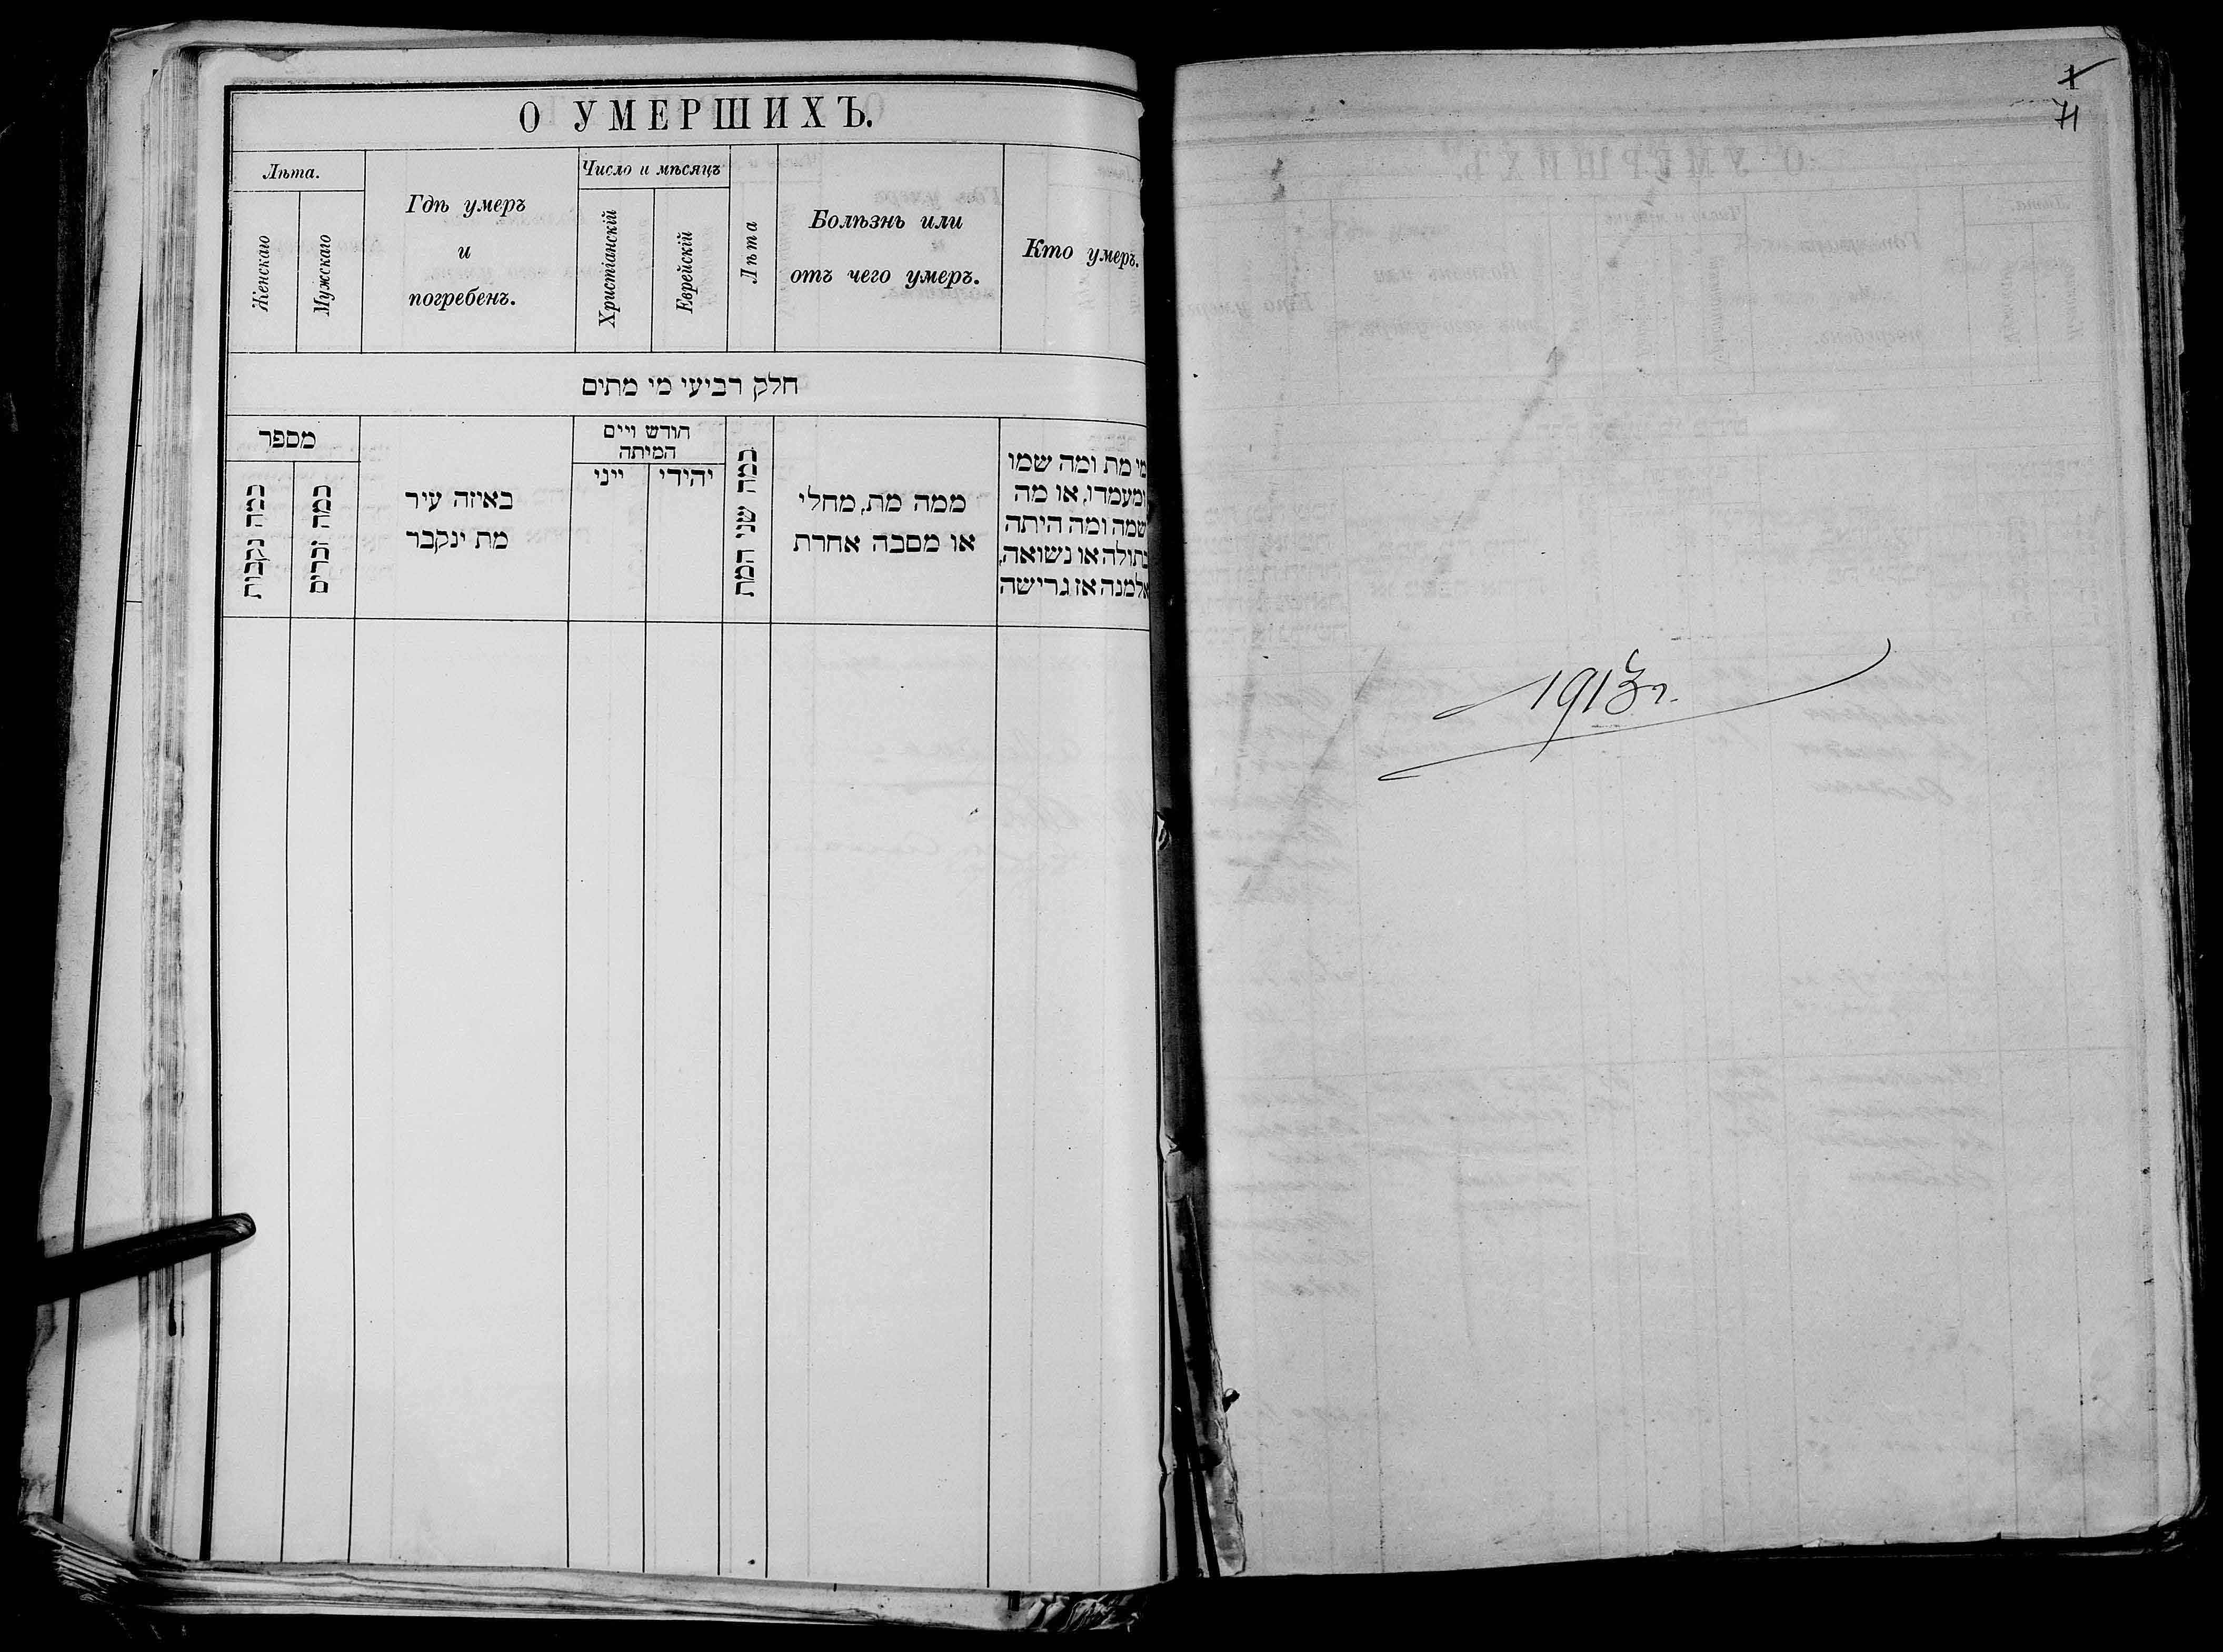 О УМЕРШИХЪ.
Лѣта.
Женскаго
Мужскаго
Гдѣ умеръ
и
погребенъ.
Число и мѣсяцъ
Христіанскій
Еврейскій
Лѣта
Болѣзнь или
отъ чего умеръ.
Кто умеръ.
חלק רביעי מי מתים
מספר
כמה נקבות
כמה זכרים
באיזה עיר
מת ינקבר
חודש ויים
המיתה
ייני
יהודי
כמה שני המת
ממה מת, מחלי
או מסבה אחרת
מי מת ומה שמו
ומעמדו, או מה
שמה ומה היתה
בתולה או נשואה,
אלמנה או גרישה
71
1913 г.